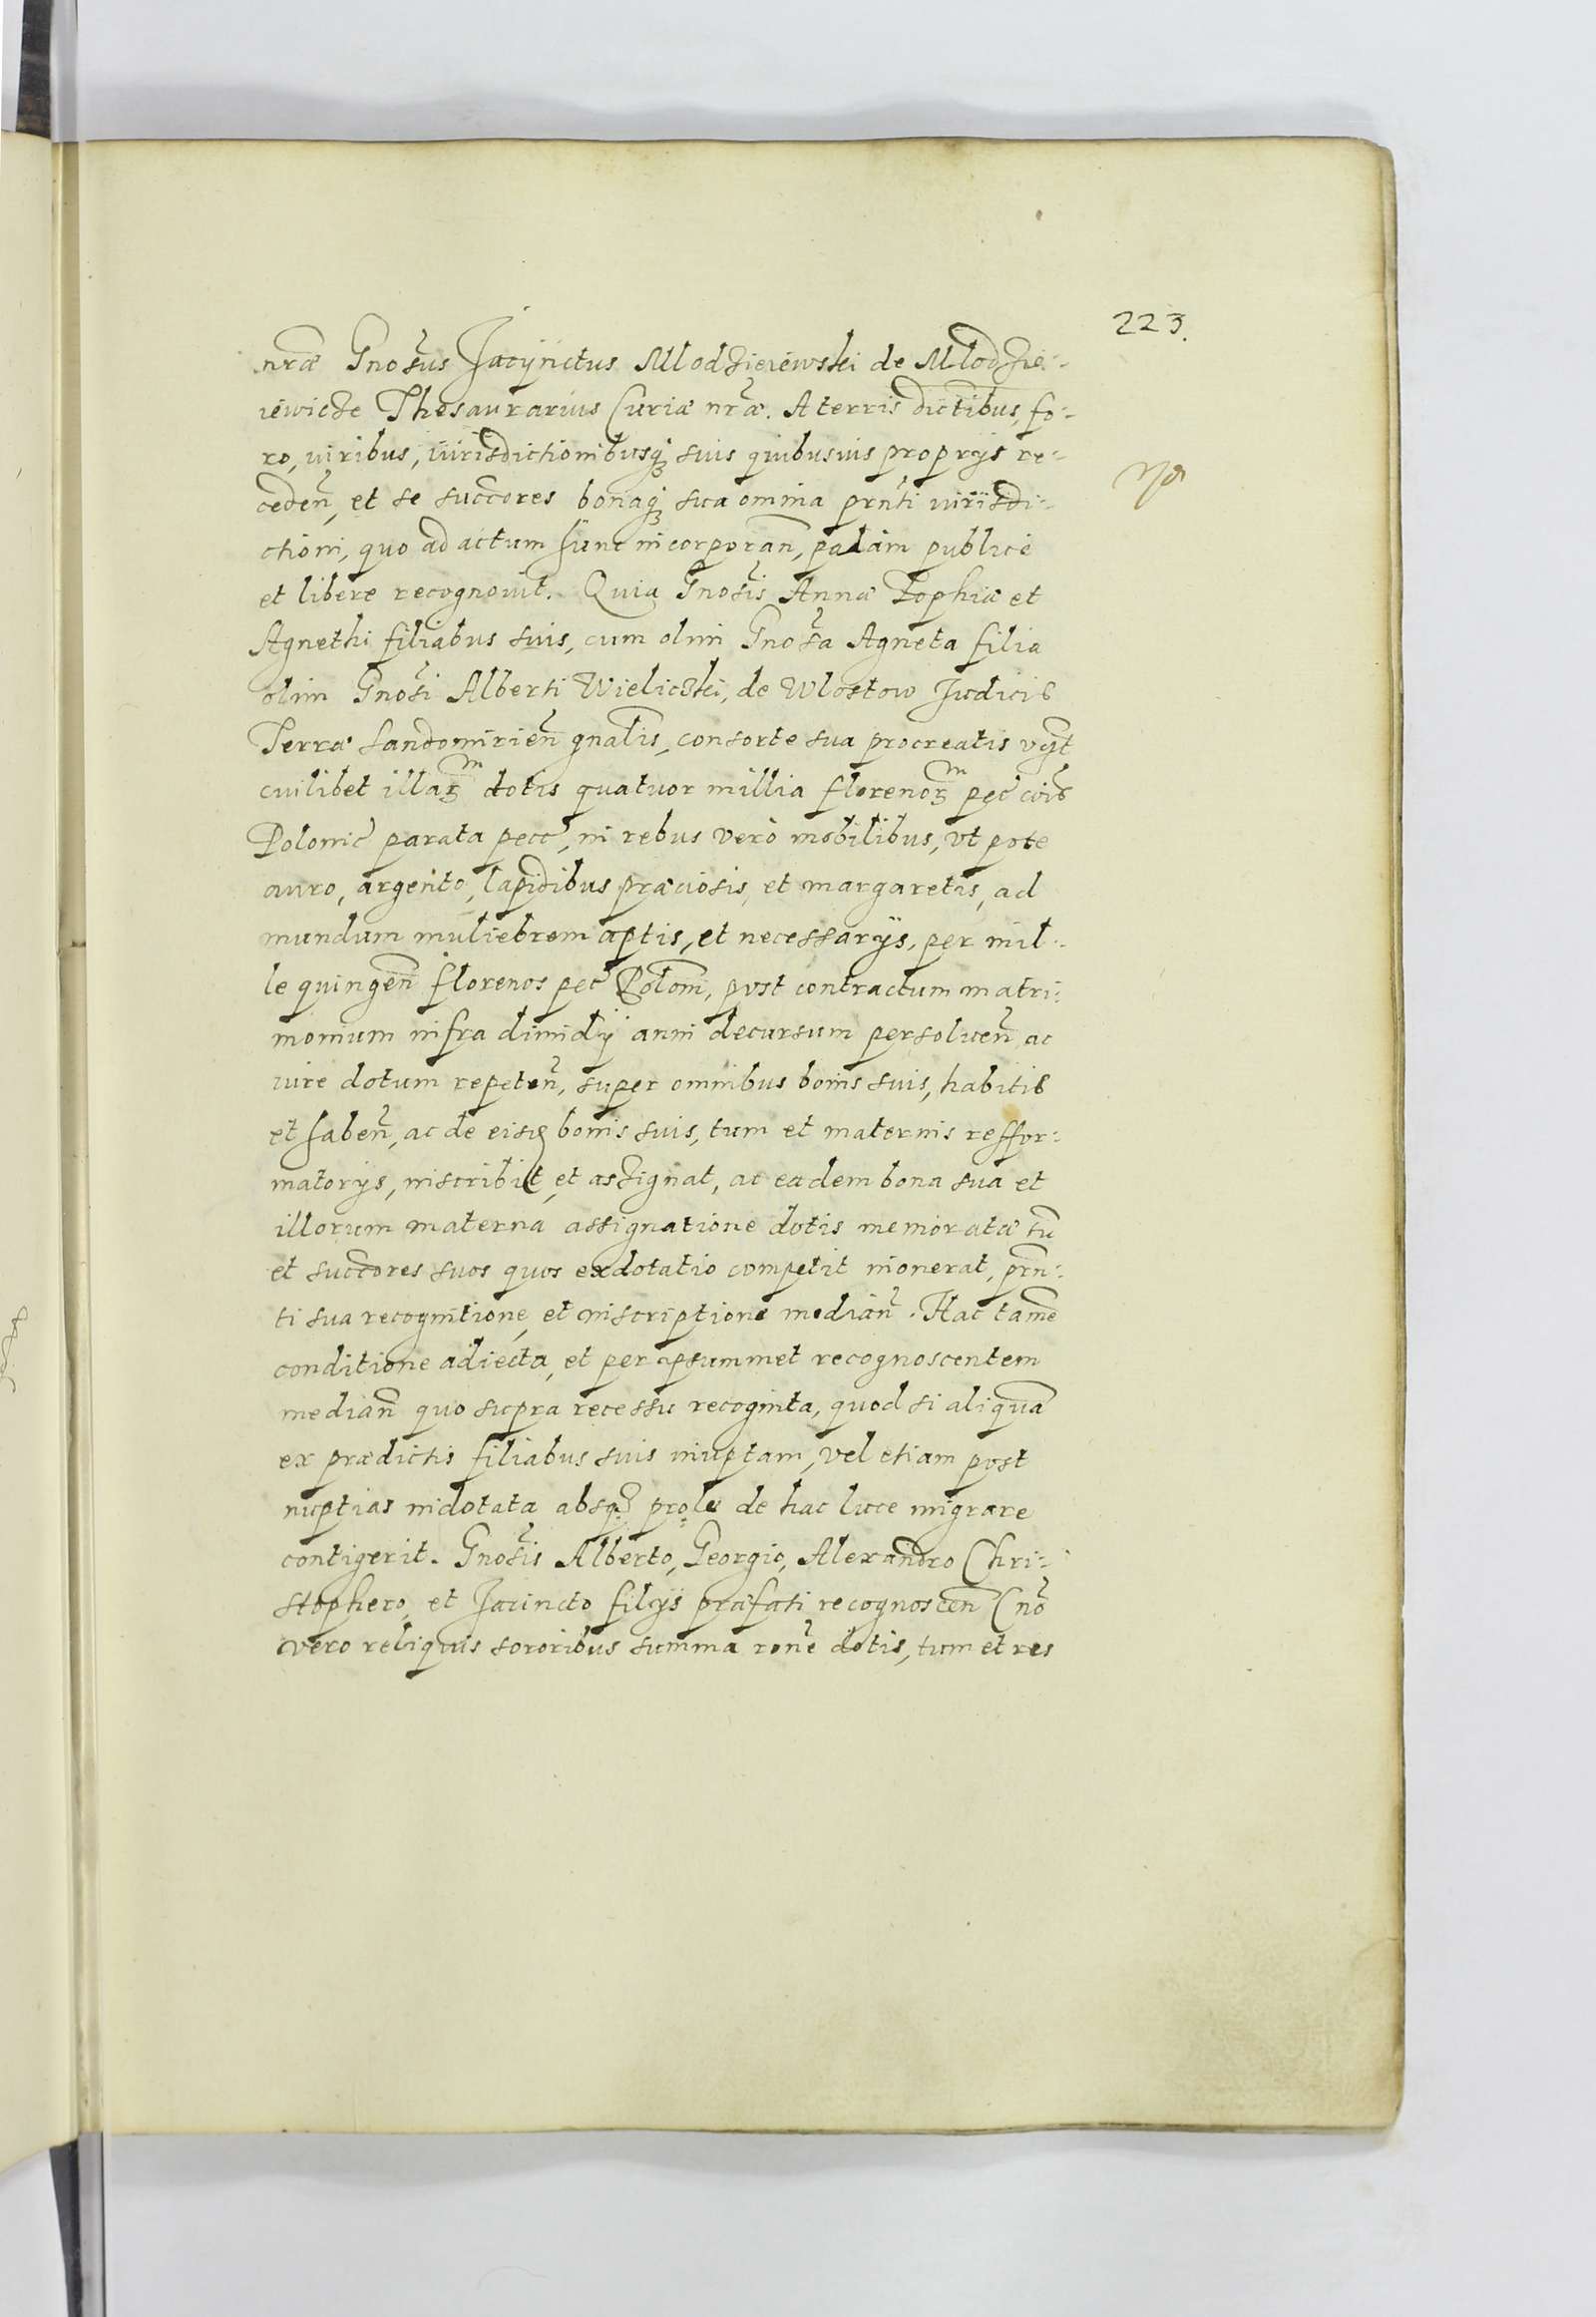 223.
nræ Gnosus Jacynctus Mlodzieiewski de Mlodzie-
iewicze Thesaurarius Curiæ nræ. A terris dictibus, fo-
ro, iuribus, iurisdictionibusq suis quibusuis proprys re-
ceden, et se succores bonaq sua omnia prnti iurisdi-
ctioni, quo ad actum hunc incorporan, palam publice
et libere recognouit. Quia Gnosis Annæ Zophiæ et
Agnethi filiabus suis, cum olim Gnosa Agneta filia
olim Gnosi Alberti Wieliczki, de Wlostow Judicis
Terræ Sandomirien gnalis, consorte sua procreatis vgt
cuilibet illarm dotis quatuor millia florenorm pec cois
Polonic parata pecc, in rebus vero mobilibus, vt pote
auro, argento, lapidibus præciosis, et margaretis, ad
mundum muliebrem aptis, et necessarys, per mil-
le quingen florenos pec Polom, post contractum matri-
monium infra dimidy anni decursum persoluen ac
iure dotum repeten, super omnibus bonis suis, habitis
et haben, ac de eisq bonis suis, tum et maternis reffor-
matorys, inscribit, et assignat, ac eadem bona sua et
illorum materna assignatione dotis memoratæ su
et succores suos quos exdotatio competit inonerat, prn-
ti sua recognitione, et inscriptione median. Hac tame
conditione adiecta, et per ipsummet recognoscentem
median quo supra recessu recognita, quod si aliqua
ex prædictis filiabus suis innuptam, vel etiam post
nuptias indotata absq prole de hac luce migrare
contigerit. Gnosis Alberto, Georgio, Alexandro Chri-
stophero, et Jacincto filys præfati recognoscen (no
vero reliquis sororibus summa rone dotis, tum et res